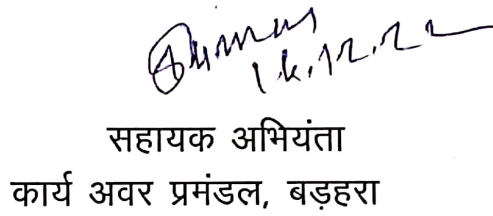 16.12.22
सहायक अभियंता
कार्य अवर प्रमंडल, बड़हरा